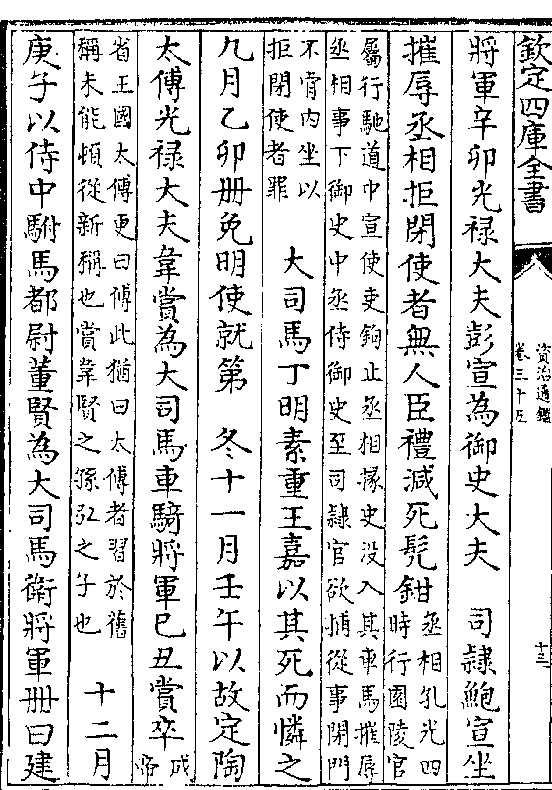 欽定四庫全書
資治通鑑
卷三十五
十三
將軍辛卯光禄大夫彭宣為御史大夫　司隷鮑宣坐
摧辱丞相拒閉使者無人臣禮減死髠鉗
丞相孔光四
時行園陵官
屬行馳道中宣使吏鉤止丞相掾史没入其車馬摧辱
丞相事下御史中丞侍御史至司隷官欲捕從事閉門
不肯内坐以
拒閉使者罪
大司馬丁明素重王嘉以其死而憐之
九月乙卯册免明使就第　冬十一月壬午以故定陶
太傅光禄大夫韋賞為大司馬車騎將軍己丑賞卒
成
帝
省王國太傅更曰傅此猶曰太傅者習於舊
稱未能頓從新稱也賞韋賢之孫弘之子也
十二月
庚子以侍中駙馬都尉董賢為大司馬衛將軍册曰建